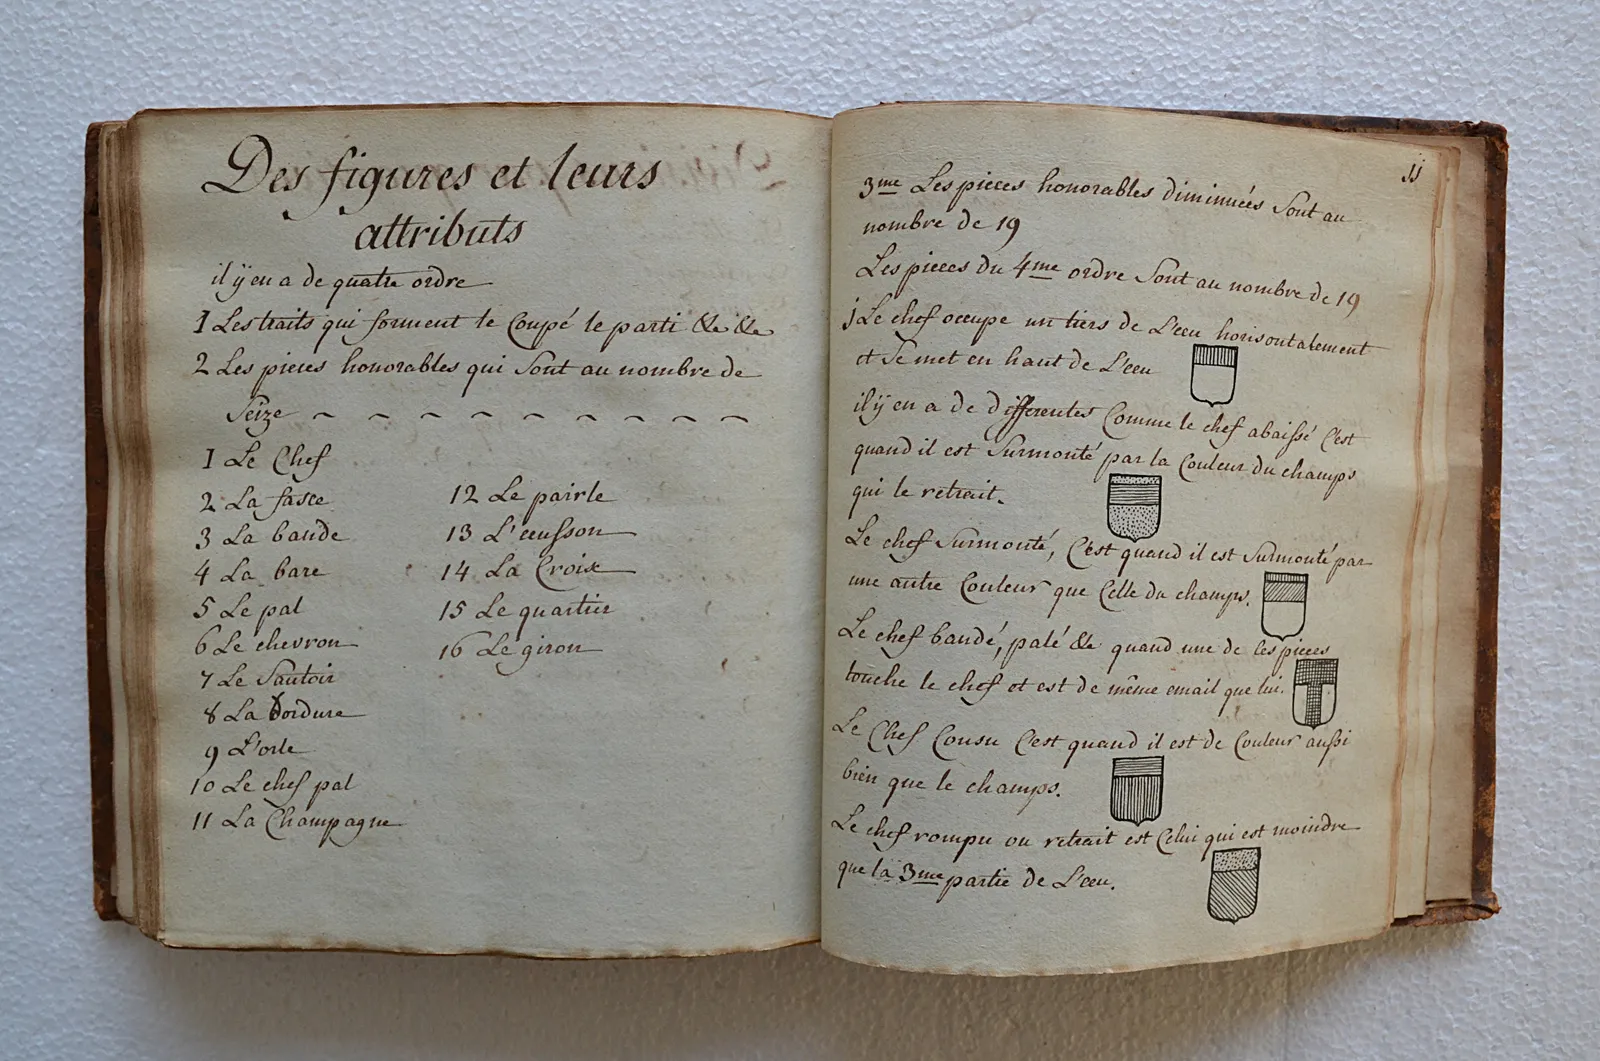 Des figures et leurs
attributs
il ÿ en a de quatre ordre
1 Les traits qui forment le Coupé le parti &c &c
2 Les pieces honorables qui Sont au nombre de
Seize ~ ~ ~ ~ ~ ~ ~ ~ ~ ~
1 Le Chef
2 La fasce
3 La bande
4 La bare
5 Le pal
6 Le chevron
7 Le Sautoir
8 La bordure
9 L'orle
10 Le chef pal
11 La Champagne
12 Le pairle
13 L'ecusson
14 La Croix
15 Le quartier
16 Le giron
11
3me Les pieces honorables diminuées Sont au
nombre de 19
Les pieces du 4me ordre Sont au nombre de 19
1 Le chef occupe un tiers de L'ecu horisontalement
et Se met en haut de L'ecu
il ÿ en a de differentes Comme le chef abaissé C'est
quand il est Surmonté par la Couleur du champs
qui le retrait.
Le chef Surmonté, C'est quand il est Surmonté par
une autre Couleur que Celle du champs.
Le chef bandé, palé &c quand une de Ces pieces
touche le chef et est de même email que lui.
Le Chef Cousu C'est quand il est de Couleur aussi
bien que le champs.
Le chef rompu ou retrait est Celui qui est moindre
que la 3me partie de L'ecu.